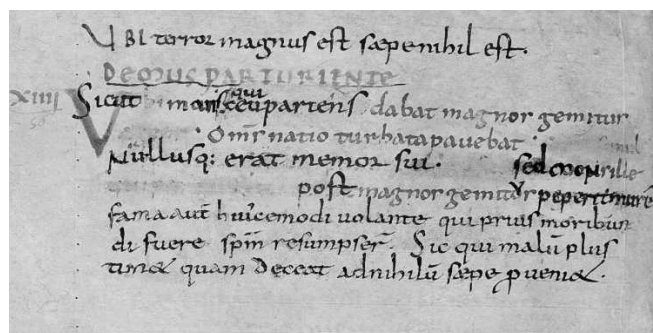 UBI terror magnus est sæpe nihil est.
DE MUS PARTURIENTE
XIIII Sicut mons qui parturiens dabat magnor gemitur
Omīr natio turbata pavebat
Nullusq: erat memor sui. sed mons ille
post magnor gemitur peperit murē
fama aut̄ huicemodi volante qui prius moribun
di fuere spm̄ resumpser̄. Sic qui malū plus
timet quam deceat adnihilū sæpe pveniet.